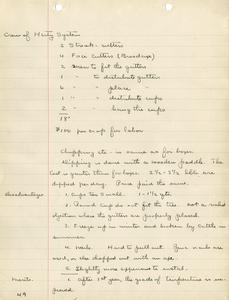 Crew of Herty System
2 Streak-cutters
4 Face Cutters (Broadaxe)
2 men to fit the gutters
1 " to distribute gutters
6 " place "
1 " distribute cups
2 " hang the cups
18
$100 per crop for labor
Chipping etc - is same as for boxes.
Dipping is done with a wooden paddle. The
cost is greater than for boxes. 2½ - 3½ bbls are
dipped per day. Price paid the same.
Disadvantages 1. Cups too small. 1 - 1½ qts
2. Round cups do not fit the tins not a valid
objection where the gutters are properly placed.
3. Freeze up in winter and broken by cattle in
summer.
4. Nails. Hard to pull out. Gum nails are
used, or else chopped out with an axe.
5. Slightly more expensive to install.
Merits. 1. After 1st year, the grade of turpentine is im-
proved
49